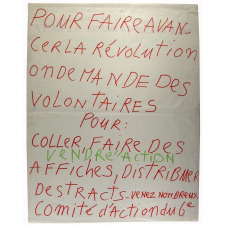 POUR FAIRE AVAN-
CER LA RÉVOLUTION
ON DEMANDE DES
VOLONTAIRES
POUR:
COLLER, FAIRE DES
VENDRE ACTION
AFFICHES, DISTRIBUER
DES TRACTS.. VENEZ NOMBREUX
COMITÉ D'ACTION DU 6e